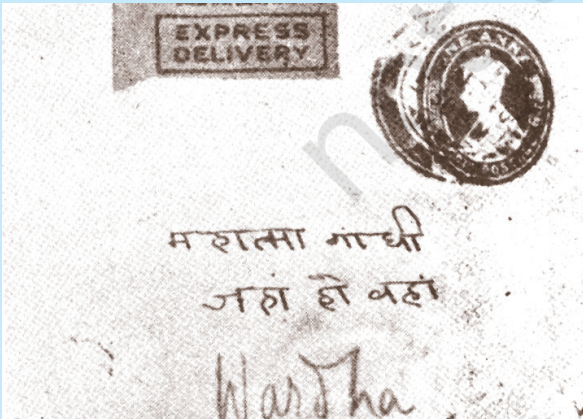 EXPRESS
DELIVERY
महात्मा गांधी
जहां हो वहां
Wardha